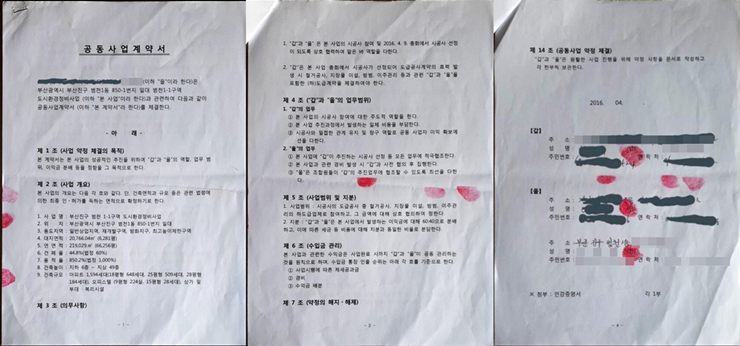 공 동 사 업 계 약 서
(이하 "을"이라 한다)은
부산광역시 부산진구 범천1동 850-1번지 일대 범천1-1구역
도시환경정비사업 (이하 "본 사업"이라 한다)과 관련하여 다음과 같이
공동사업계약서 (이하 "본 계약서"라 한다)를 체결한다.
- 아 래 -
제 1 조 (사업 약정 체결의 목적)
본 계약서는 본 사업의 성공적인 추진을 위하여 "갑"과 "을"의 역할, 업무 범
위, 이익금 분배 등을 정함을 그 목적으로 한다.
제 2 조 (사업 개요)
본 사업의 개요는 다음 각 호와 같다. 단, 건축면적과 규모 등은 관련 법령에
의한 최종 인·허가를 득하는 면적으로 확정하기로 한다.
1. 사 업 명 : 부산진구 범천 1-1구역 도시환경정비사업
2. 위 치 : 부산광역시 부산진구 범천1동 850-1번지 일대
3. 용도지역 : 일반상업지역, 재개발구역, 방화지구, 최고높이제한구역
4. 대지면적 : 20,766.04㎡ (6,281평)
5. 연 면 적 : 219,029㎡ (66,256평)
6. 건 폐 율 : 44.8%(법정 60%)
7. 용 적 율 : 850.2%(법정 1,000%)
8. 건축높이 : 지하 4층 ~ 지상 49층
9. 건축규모 : 아파트 1,594세대(18평형 644세대, 25평형 509세대, 28평형
184세대), 오피스텔 (9평형 224실, 15평형 28세대), 상가 및
부대·복리시설
제 3 조 (의무사항)
- 1 -
1. "갑"과 "을" 은 본 사업의 시공사 참여 및 2016. 4. 9. 총회에서 시공사 선정
이 되도록 상호 협력하여 맡은 바 역할을 다한다.
2. "갑"은 본 사업 총회에서 시공사가 선정되어 도급공사계약의 효력 발
생 시 철거공사, 지장물 이설, 범방, 이주관리 등과 관련 "갑"과 "을"을
포함한 (하)도급계약을 체결하여야 한다.
제 4 조 ("갑"과 "을"의 업무범위)
1. "갑"의 업무
① 본 사업의 시공사 참여에 대한 주도적 역할을 한다.
② 본 사업 추진과정에서 발생하는 일체 비용을 부담한다.
③ 시공사와 밀접한 관계 유지 및 창구 역할로 공동 사업자 이익 확보에
최선을 다한다.
2. "을"의 업무
① 본 사업에 "갑"이 추진하는 시공사 선정 등 모든 업무에 적극협조한다.
② 본 사업과 관련 경비 발생 시 "갑"과 사전 협의 후 집행한다.
③ "을"은 조합원들이 "갑"의 추진업무에 협조할 수 있도록 최선을 다한
다.
제 5 조 (사업범위 및 지분)
1. 사업범위 : 시공사의 도급공사 중 철거공사, 지장물 이설, 방범, 이주관
리의 하도급업체로 참여하고, 그 금액에 대해 상호 협의하여 정한다.
2. 지분 : "갑"과 "을"은 본 사업에서 발생하는 이익금에 대해 60:40으로 분배
하고, 이에 따른 세금 등 비용에 대해 지분과 동일한 비율로 분담한다.
제 6 조 (수입금 관리)
본 사업과 관련한 수익금은 사업완료 시까지 "갑"과 "을"이 공동 관리하는
것을 원칙으로 하며, 수입금 통장 인출 순위는 아래 각 호를 기준으로 한다.
① 사업시행에 따른 제세공과금
② 경비
③ 수익금 배분
제 7 조 (약정의 해지·해제)
- 2 -
제 14 조 (공동사업 약정 체결)
"갑"과 "을"은 원활한 사업 진행을 위해 약정 사항을 문서로 작성하고
각 한부씩 보관한다.
2016. 04.
[갑]
주 소
성 명
주민번호 연 락 처 :
[을]
주 소
성 명
주민번호 연 락 처 :
주 소
성 명
주민번호 연 락 처
※ 첨부 : 인감증명서 각 1부
- 4 -